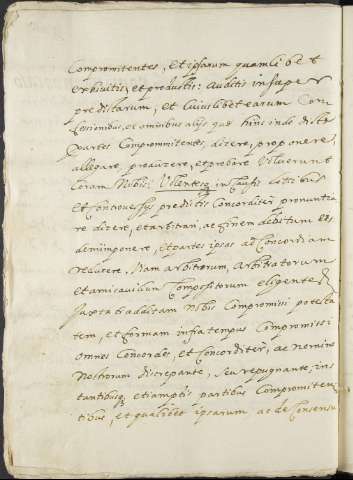 Compromitentes, et ipsarum quamlibet
exhivitis, et productis: Auditis insuper
predictarum, et Cuiuslibet earum Con
fessionibus, et omnibus alijs que hinc inde dicte
Partes Compromitentes, dicere, proponere,
allegare, producere, et probare Voluerunt
Coram Nobis: Volentesq in Causis litibus
et Controversijs predictis Concorditer pronuntia
re dicere, et arbitrari, ac finem debitum eis
dem imponere, et partes ipsas ad Concordiam
reducere, Viam arbitrorum, Arbitratorum
et amicauilium Compositorum eligentes
Juxta traditam Nobis Compromissi potesta
tem, et formam infra tempus Compromissi
omnes Concordes, et Concorditer, ac nemine
Nostrorum discrepante, seu repugnante, ins
tantibusq etiam ptis partibus Compromiten
tibus, et qualibet ipsarum ac de Consensu